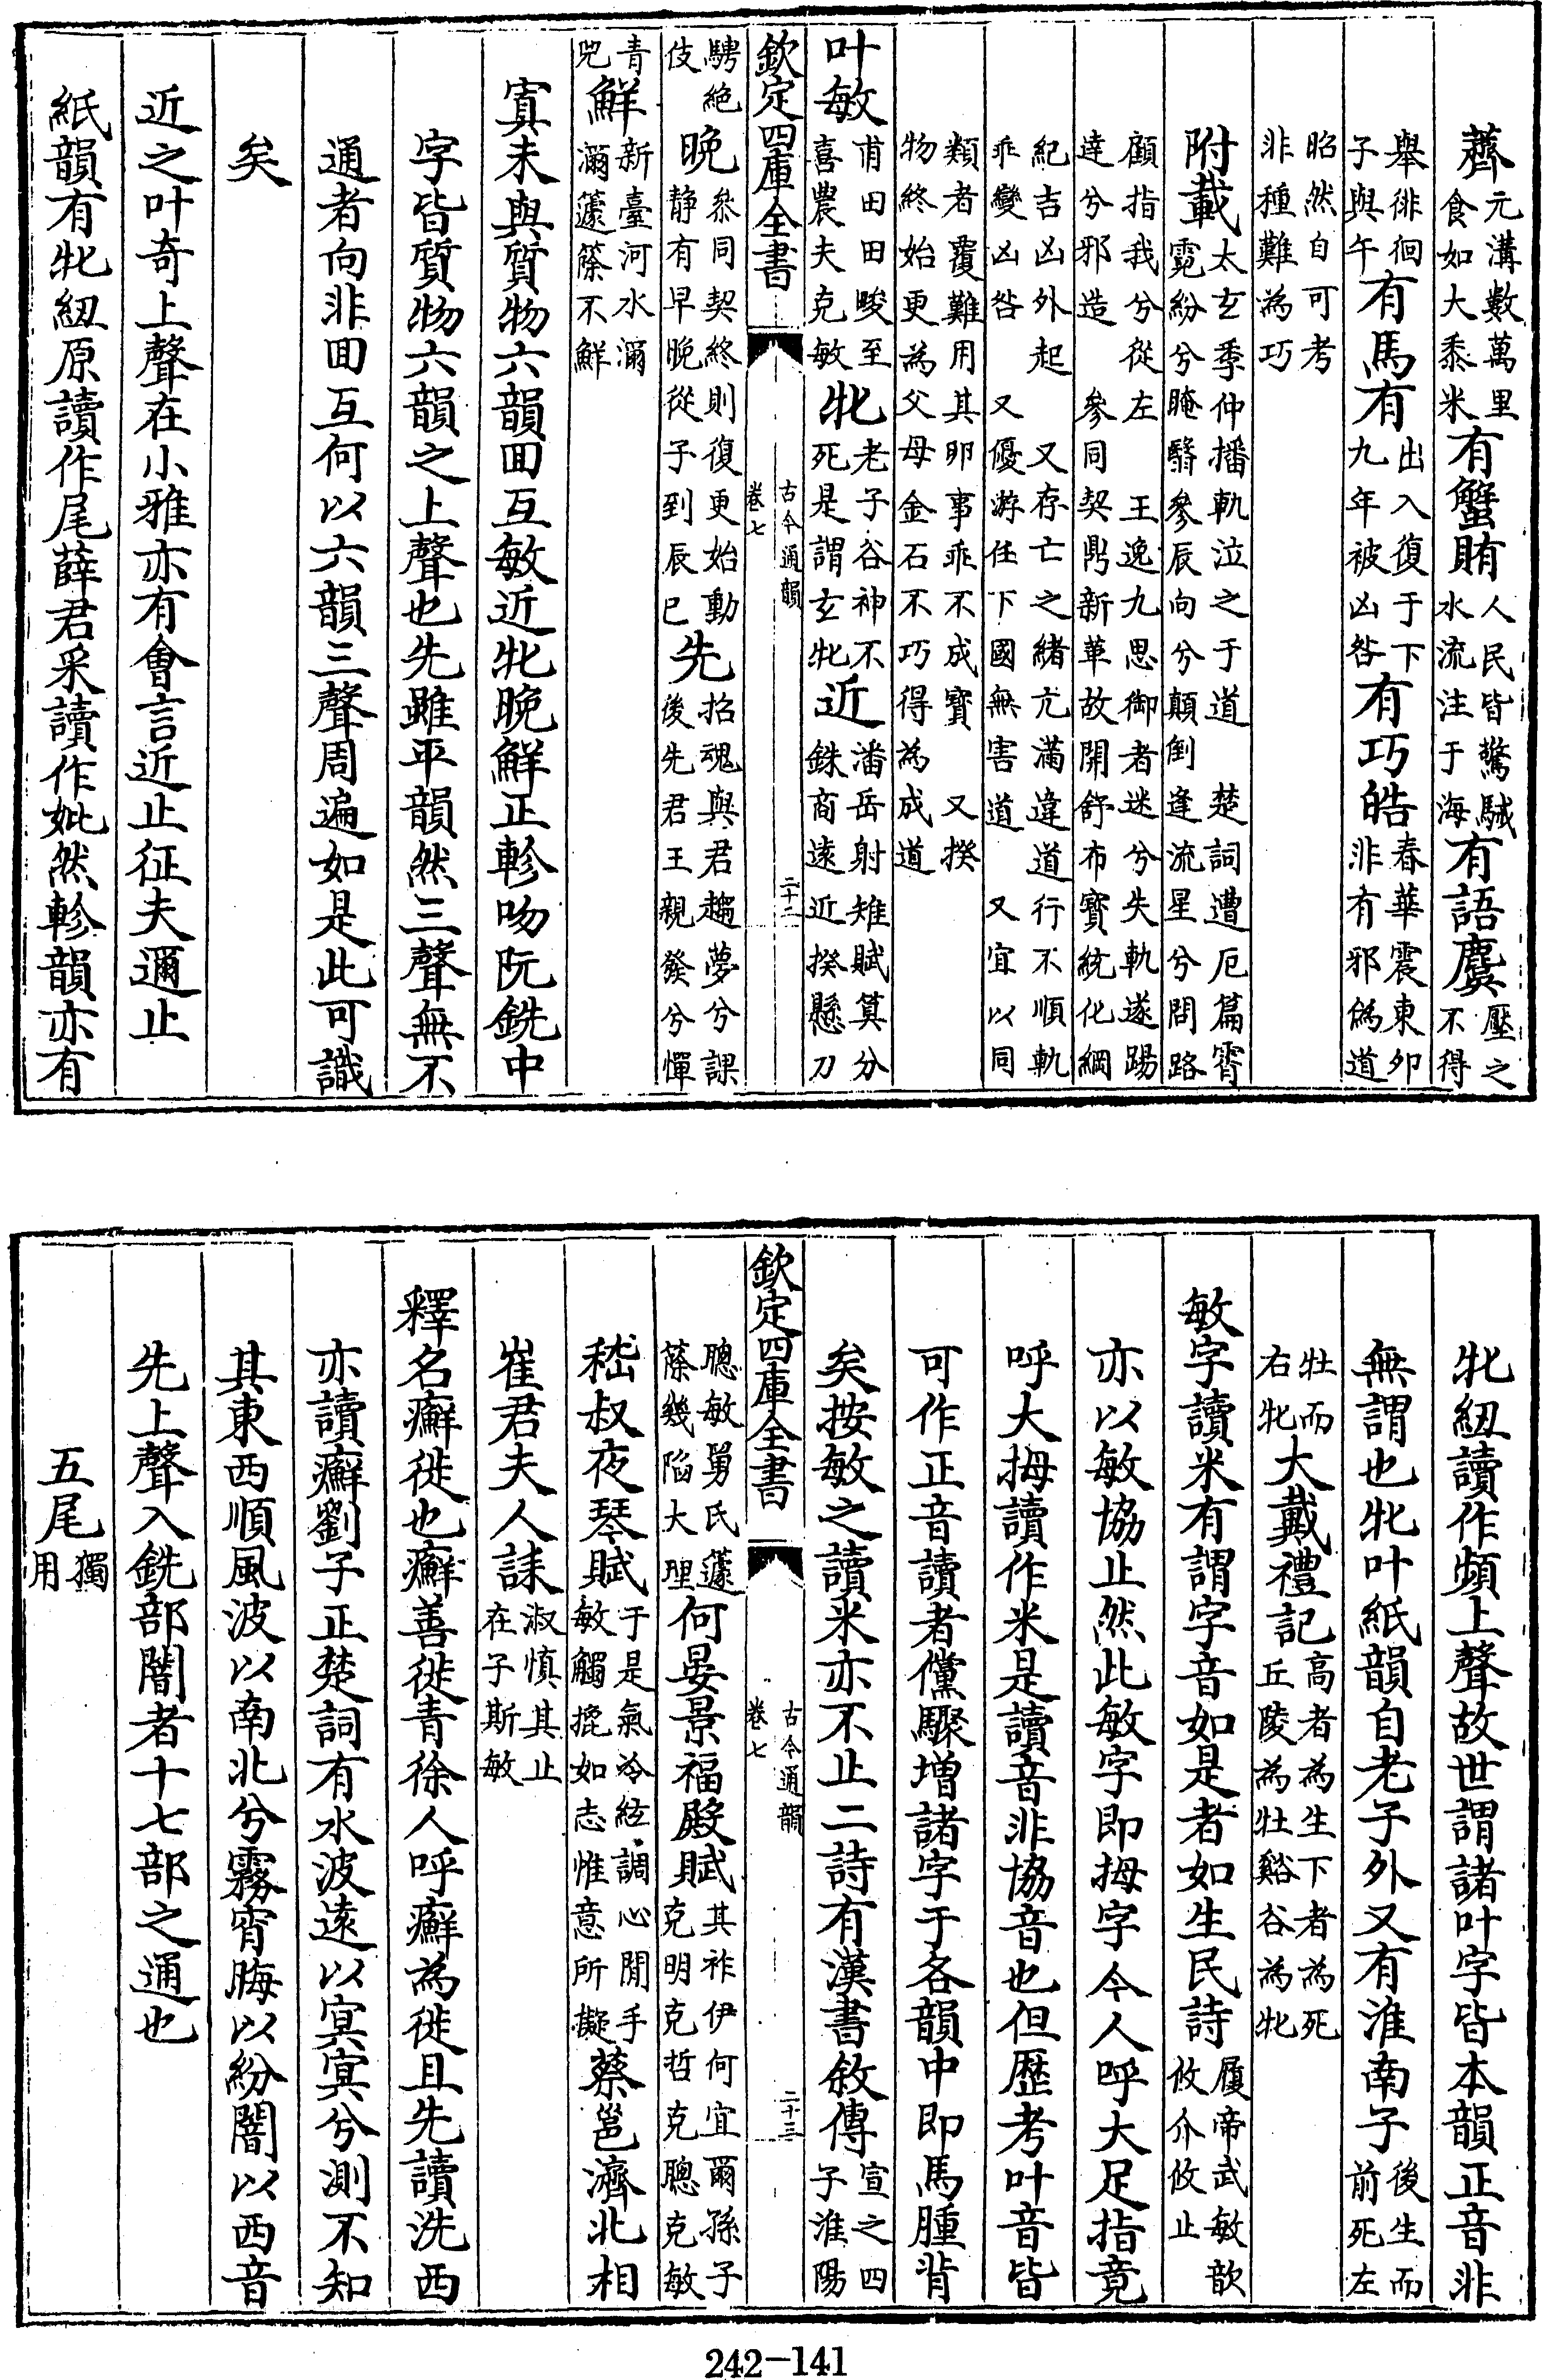 薺元溝數萬里食如大黍米有蟹賄人民皆驚駴水流注于海有語麌壓之不得
舉徘徊子與午有馬有出入復于下九年被凶咎有巧皓春華震東卯非有邪偽道
昭然自可考非種難為巧
附載太玄季仲播軌泣之于道 楚詞遭厄篇霄霓紛兮晻翳參辰向兮顛倒逢流星兮問路
顧指我兮從左 王逸九思御者迷兮失軌遂踢達兮邪造 參同契鼎新革故開舒布寳統化綱
紀吉凶外起 又存亡之緒亢滿違道行不順軌乖變凶咎 又優游任下國無害道 又宜以同
類者覆難用其卵事乖不成寳 又揆物終始更為父母金石不巧得為成道
叶敏甫田田畯至喜農夫克敏牝老子谷神不死是謂玄牝近潘岳射雉賦算分銖商遠近揆懸刀
欽定四庫全書 古今通韻卷七 二十二
騁絶伎晚叅同契終則復更始動静有早晚從子到辰巳先招魂與君趨夢兮課後先君王親發兮憚
青兕鮮新臺河水瀰瀰籧篨不鮮
寘未與質物六韻囘互敏近牝晚鮮正軫吻阮銑中
字皆質物六韻之上聲也先雖平韻然三聲無不
通者向非囘互何以六韻三聲周遍如是此可識
矣
近之叶竒上聲在小雅亦有會言近止征夫邇止
紙韻有牝紐原讀作尾薛君采讀作妣然軫韻亦有
牝紐讀作頻上聲故世謂諸叶字皆本韻正音非
無謂也牝叶紙韻自老子外又有淮南子後生而前死左
牡而右牝大戴禮記高者為生下者為死丘陵為牡谿谷為牝
敏字讀米有謂字音如是者如生民詩履帝武敏歆攸介攸止
亦以敏協止然此敏字即拇字今人呼大足指竟
呼大拇讀作米是讀音非協音也但歷考叶音皆
可作正音讀者儻驟增諸字于各韻中即馬腫背
矣按敏之讀米亦不止二詩有漢書敘傳宣之四子淮陽
欽定四庫全書 古今通韻卷七 二十三
聰敏舅氏籧蒢幾陷大理何晏景福殿賦其祚伊何宜爾孫子克明克哲克聰克敏
嵇叔夜琴賦于是氣冷絃調心閒手敏觸㧓如志惟意所擬蔡邕濟北相
崔君夫人誄淑慎其止在子斯敏
釋名癬徙也癬善徙青徐人呼癬為徙且先讀洗西
亦讀癬劉子正楚詞有水波遠以冥冥兮測不知
其東西順風波以南北兮霧宵晦以紛闇以西音
先上聲入銑部闇者十七部之通也
五尾獨用
242-141